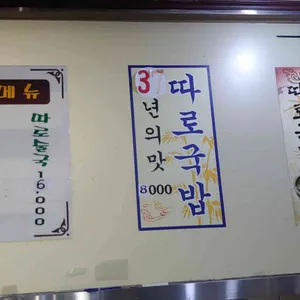 메뉴
따로술국
16,000
3
년의 맛
8000
따로국밥
따로